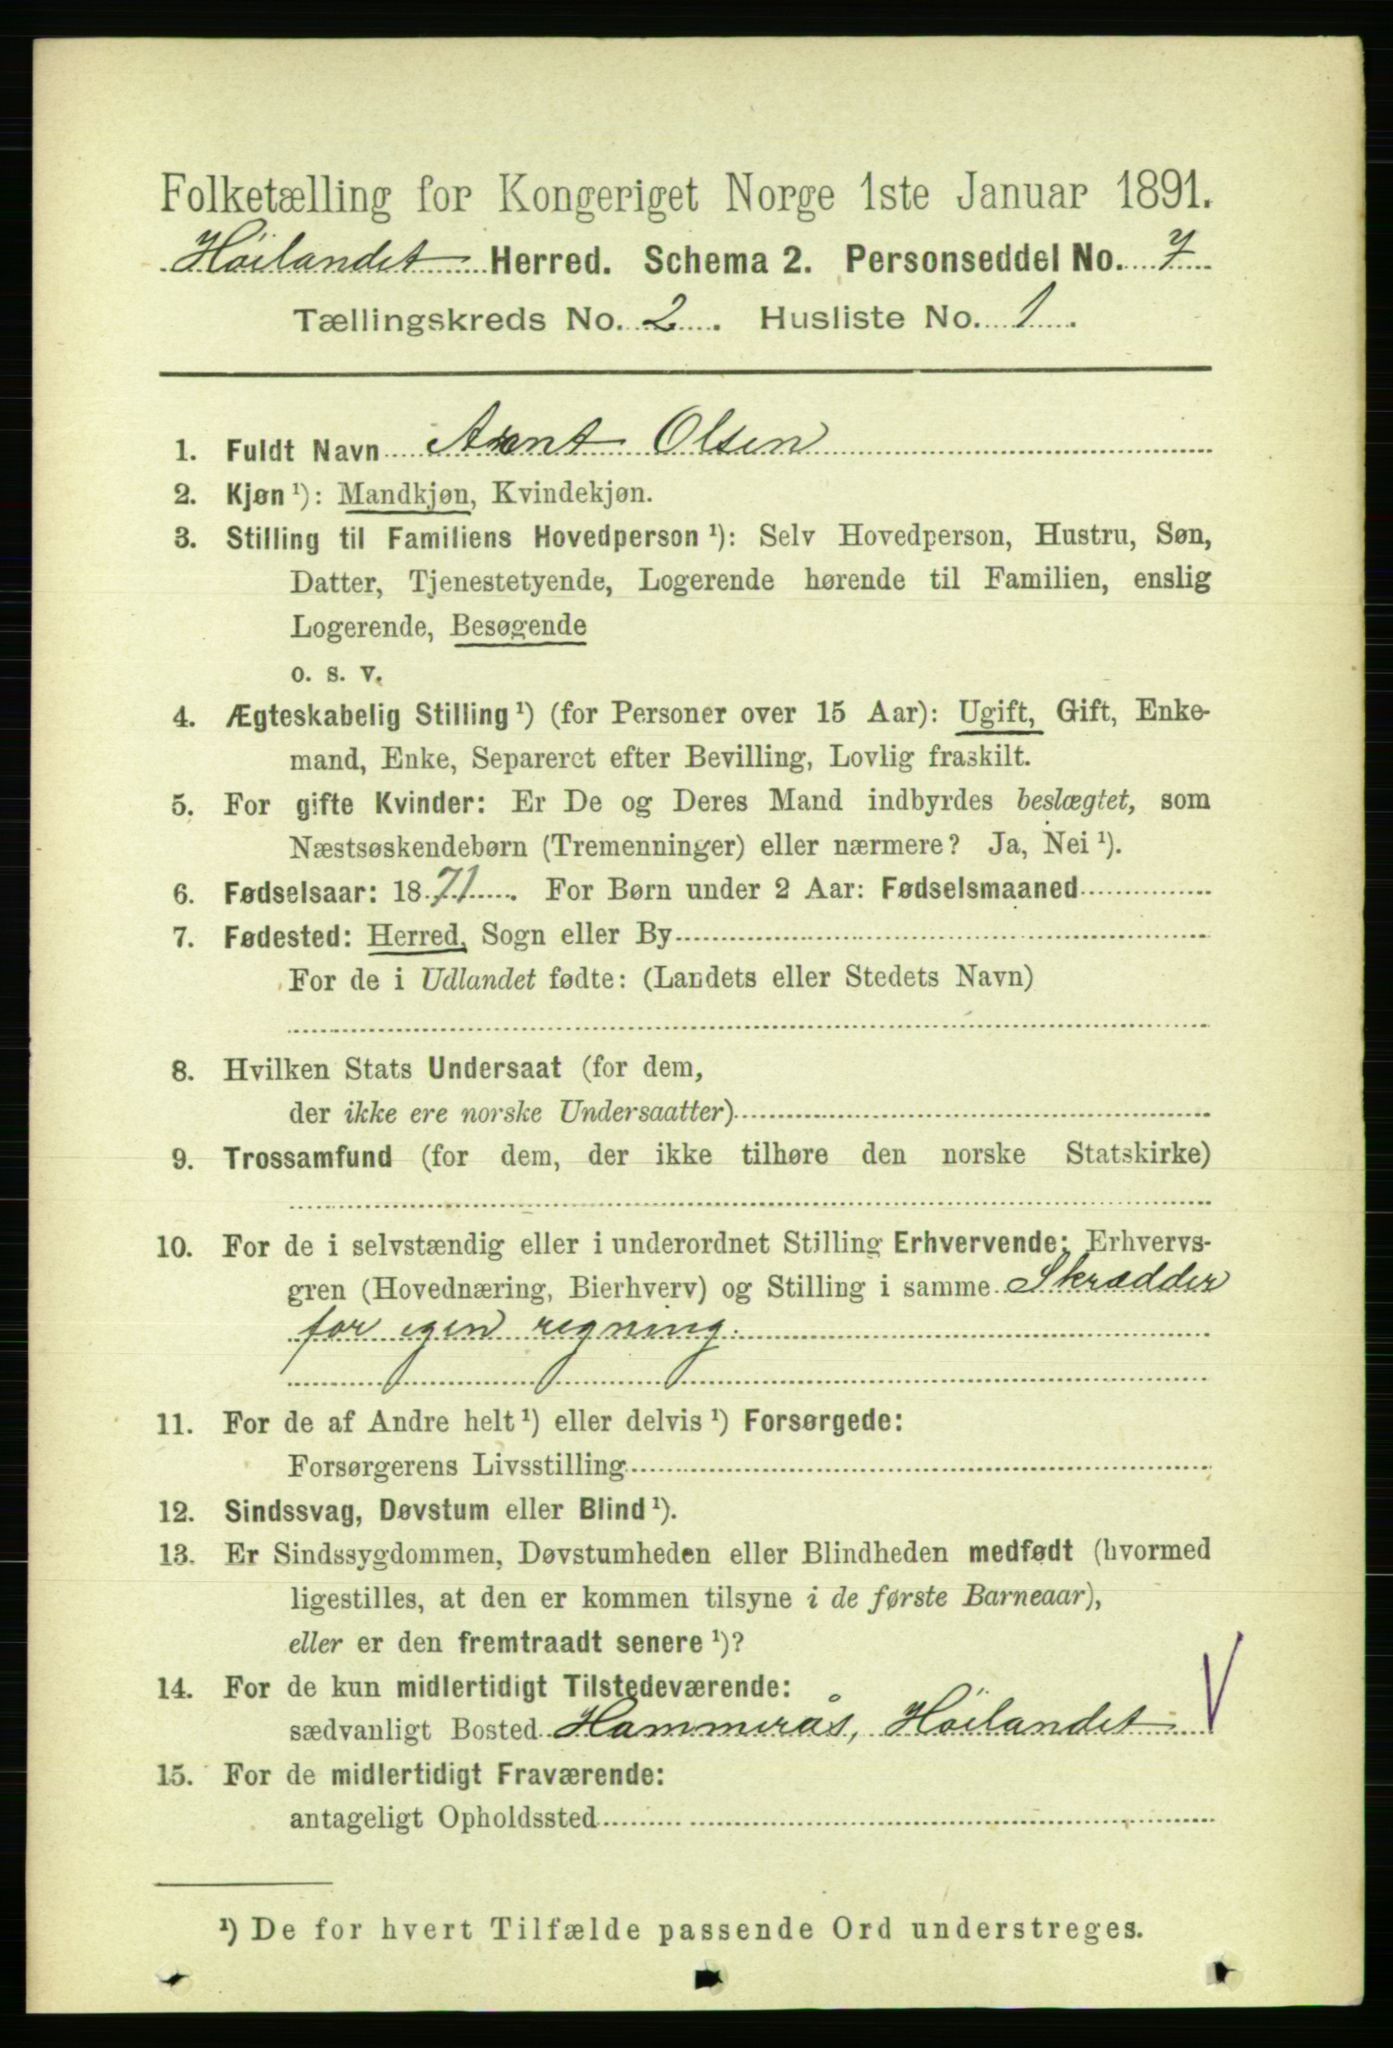 Folketælling for Kongeriget Norge 1ste Januar 1891.
Höilandet Herred. Schema 2. Personseddel No. 7
Tællingskreds No. 2. Husliste No. 1.
1. Fuldt Navn Arent Olsen
2. Kjøn ¹): Mandkjøn, Kvindekjøn.
3. Stilling til Familiens Hovedperson ¹): Selv Hovedperson, Hustru, Søn,
Datter, Tjenestetyende, Logerende hørende til Familien, enslig
Logerende, Besøgende
o. s. v.
4. Ægteskabelig Stilling ¹) (for Personer over 15 Aar): Ugift, Gift, Enke-
mand, Enke, Separeret efter Bevilling, Lovlig fraskilt.
5. For gifte Kvinder: Er De og Deres Mand indbyrdes beslægtet, som
Næstsøskendebørn (Tremenninger) eller nærmere? Ja, Nei ¹).
6. Fødselsaar: 1871. For Børn under 2 Aar: Fødselsmaaned
7. Fødested: Herred, Sogn eller By
For de i Udlandet fødte: (Landets eller Stedets Navn)
8. Hvilken Stats Undersaat (for dem,
der ikke ere norske Undersaatter)
9. Trossamfund (for dem, der ikke tilhøre den norske Statskirke)
10. For de i selvstændig eller i underordnet Stilling Erhvervende: Erhvervs-
gren (Hovednæring, Bierhverv) og Stilling i samme Skrædder
for egen regning.
11. For de af Andre helt ¹) eller delvis ¹) Forsørgede:
Forsørgerens Livsstilling
12. Sindssvag, Døvstum eller Blind ¹).
13. Er Sindssygdommen, Døvstumheden eller Blindheden medfødt (hvormed
ligestilles, at den er kommen tilsyne i de første Barneaar),
eller er den fremtraadt senere ¹)?
14. For de kun midlertidigt Tilstedeværende:
sædvanligt Bosted Hammerås, Höilandet V
15. For de midlertidigt Fraværende:
antageligt Opholdssted
¹) De for hvert Tilfælde passende Ord understreges.